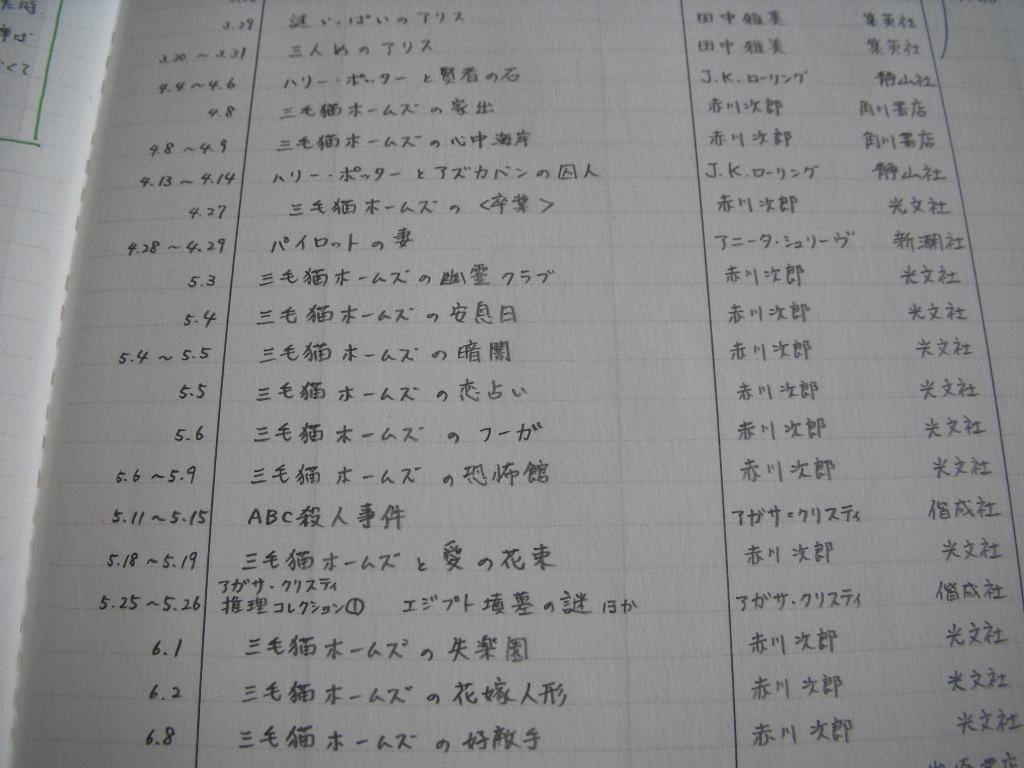 た時
くて
3.29 謎いっぱいのアリス 田中雅美 集英社
3.30～3.31 三人めのアリス 田中雅美 集英社
4.4～4.6 ハリー・ポッターと賢者の石 J.K.ローリング 静山社
4.8 三毛猫ホームズの家出 赤川次郎 角川書店
4.8～4.9 三毛猫ホームズの心中海岸 赤川次郎 角川書店
4.13～4.14 ハリー・ポッターとアズカバンの囚人 J.K.ローリング 静山社
4.27 三毛猫ホームズの〈卒業〉 赤川次郎 光文社
4.28～4.29 パイロットの妻 アニータ・シュリーヴ 新潮社
5.3 三毛猫ホームズの幽霊クラブ 赤川次郎 光文社
5.4 三毛猫ホームズの安息日 赤川次郎 光文社
5.4～5.5 三毛猫ホームズの暗闇 赤川次郎 光文社
5.5 三毛猫ホームズの恋占い 赤川次郎 光文社
5.6 三毛猫ホームズのフーガ 赤川次郎 光文社
5.6～5.9 三毛猫ホームズの恐怖館 赤川次郎 光文社
5.11～5.15 ABC殺人事件 アガサ=クリスティ 偕成社
5.18～5.19 三毛猫ホームズと愛の花束 赤川次郎 光文社
アガサ・クリスティ
5.25～5.26 推理コレクション① エジプト墳墓の謎 ほか アガサ・クリスティ 偕成社
6.1 三毛猫ホームズの失楽園 赤川次郎 光文社
6.2 三毛猫ホームズの花嫁人形 赤川次郎 光文社
6.8 三毛猫ホームズの好敵手 赤川次郎 光文社